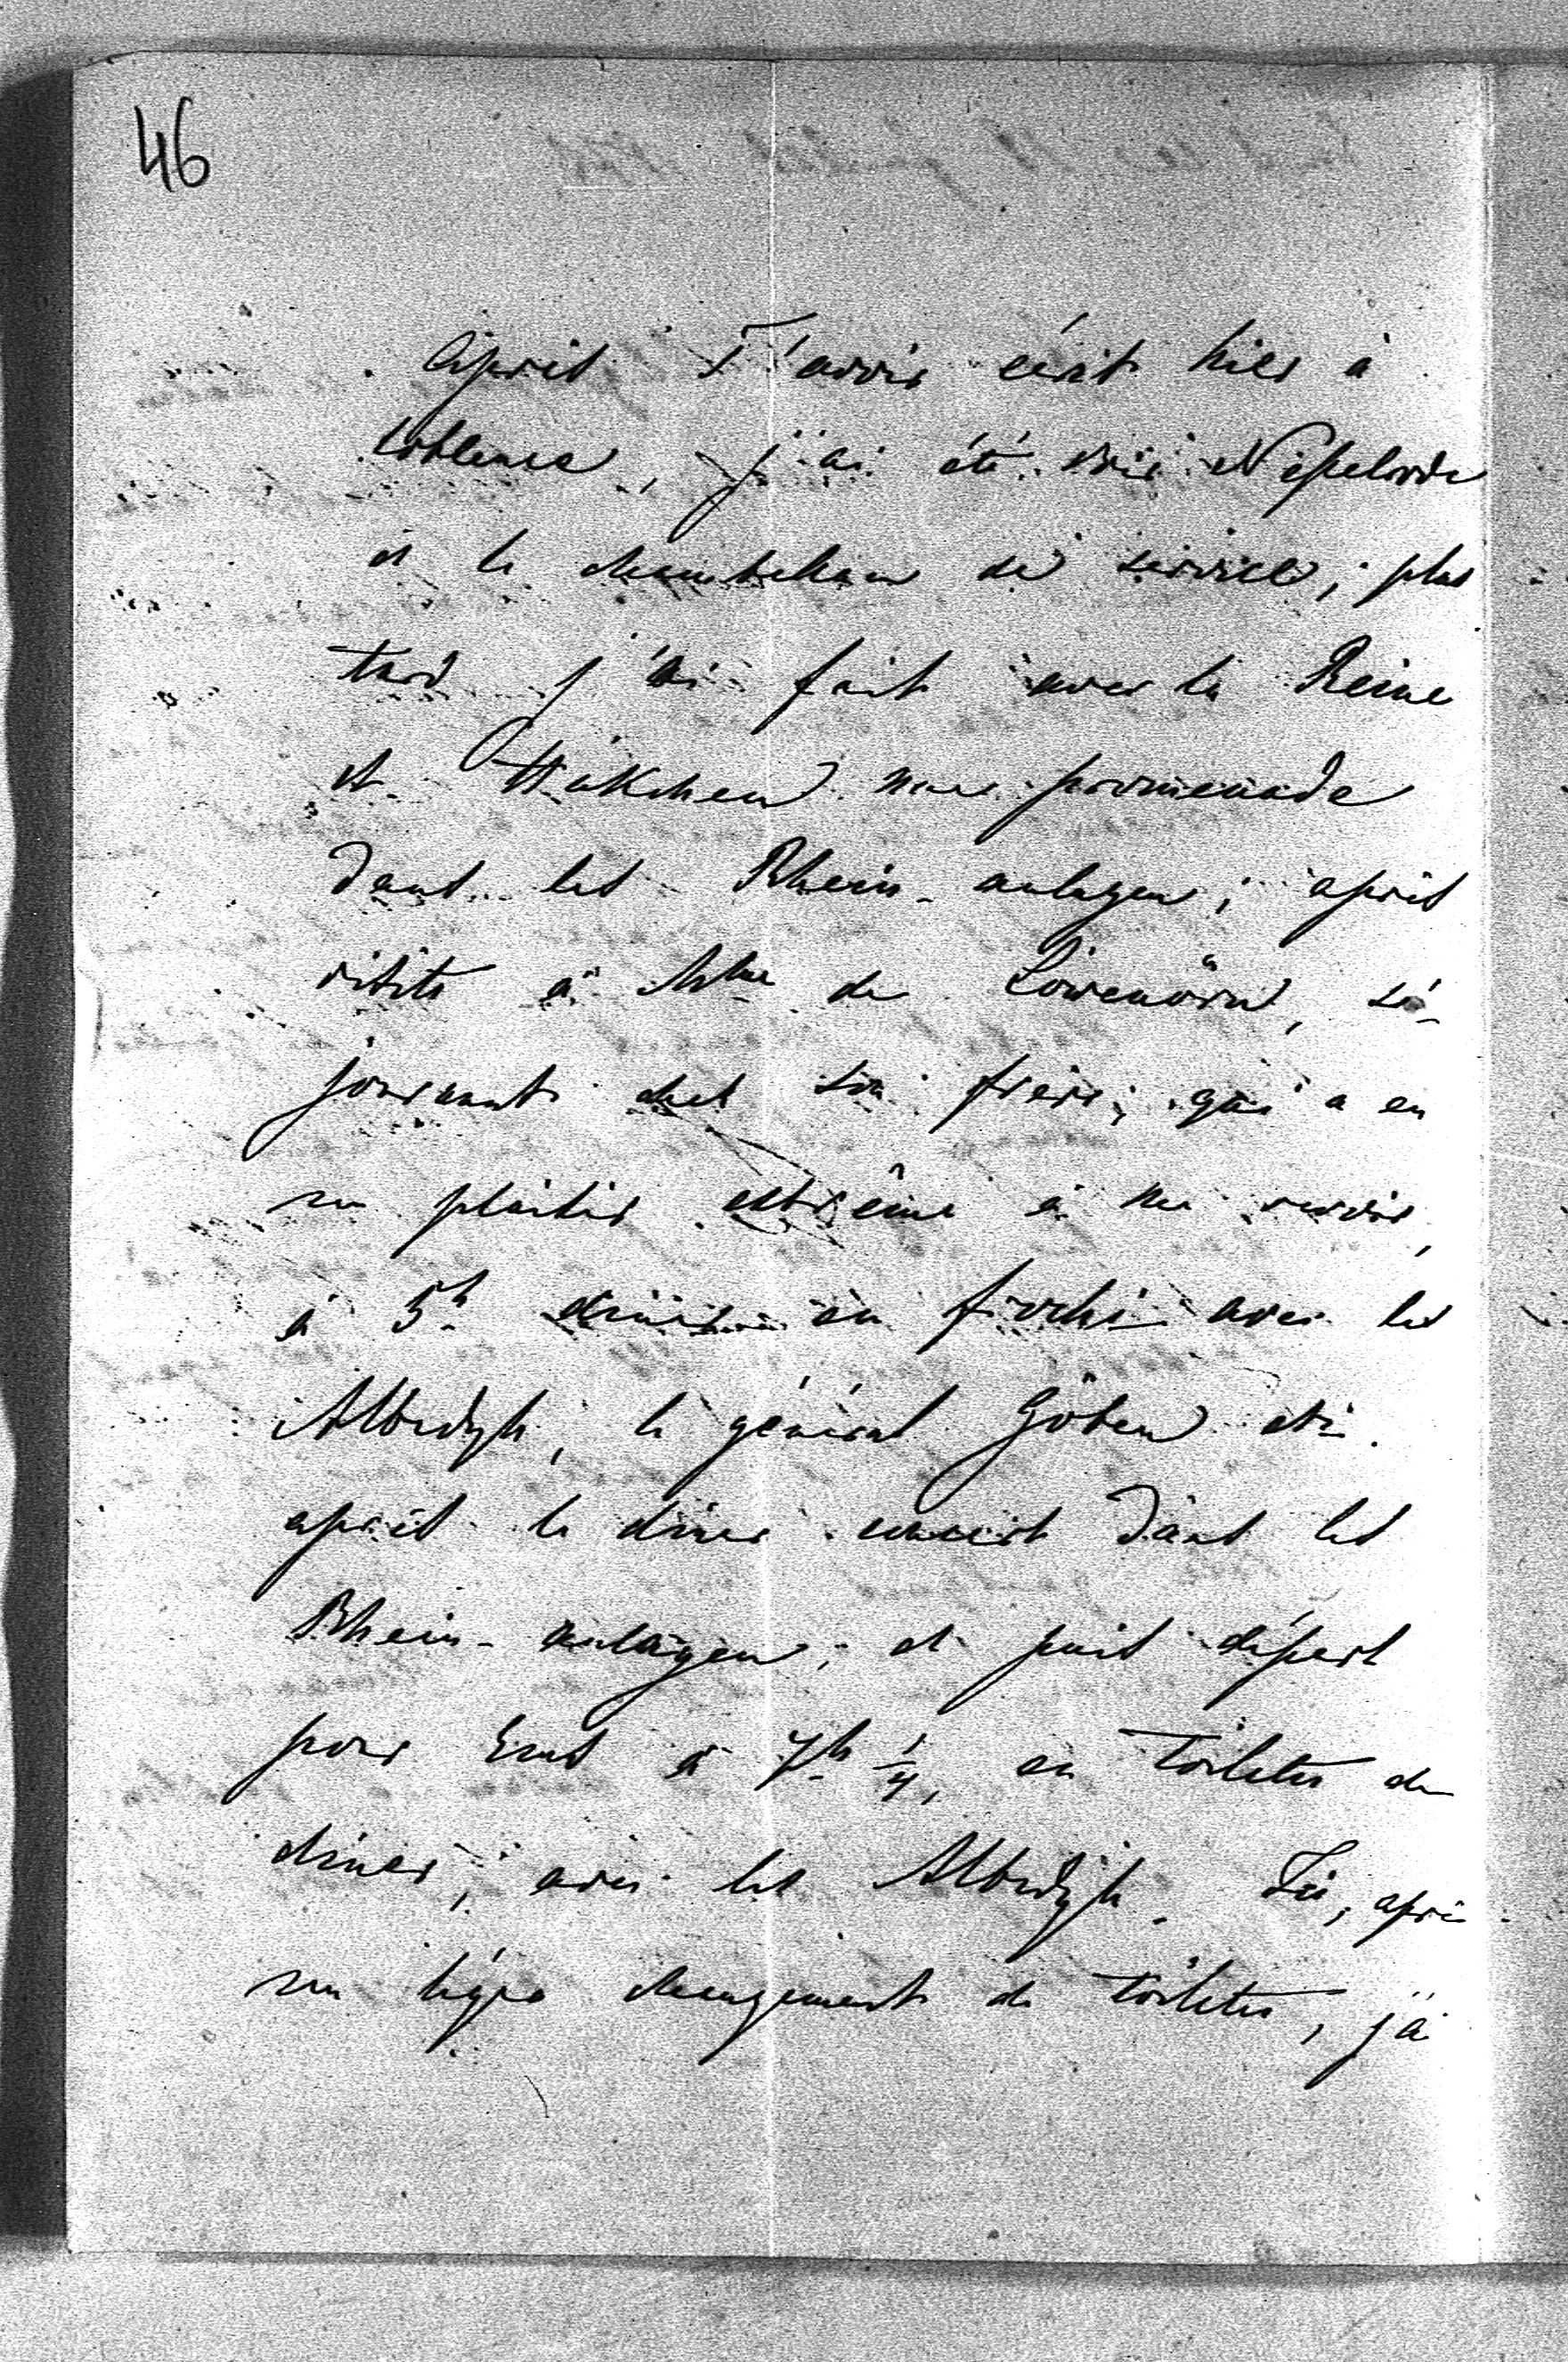 46
Après T'avoir écrit hier à
Coblence, j'ai été voir Nesselrode
et le chambellan de service; plus
tard j'ai fait avec la Reine
et Häkchen une promenade
dans les Rhein-anlagen; après
visite à Mme de Löwenörn, sé-
journant chez son frère, qui a eu
un plaisir extrême à me revoir,
à 5h dîner en fiocchi avec les
Albedyll, le général Göben etc.
après le dîner concert dans les
Rhein-anlagen; et puis départ
pour Ems à 7h 1/4, en toilette de
dîner, avec les Albedyll. Ici, après
un léger changement de toilette, j'ai